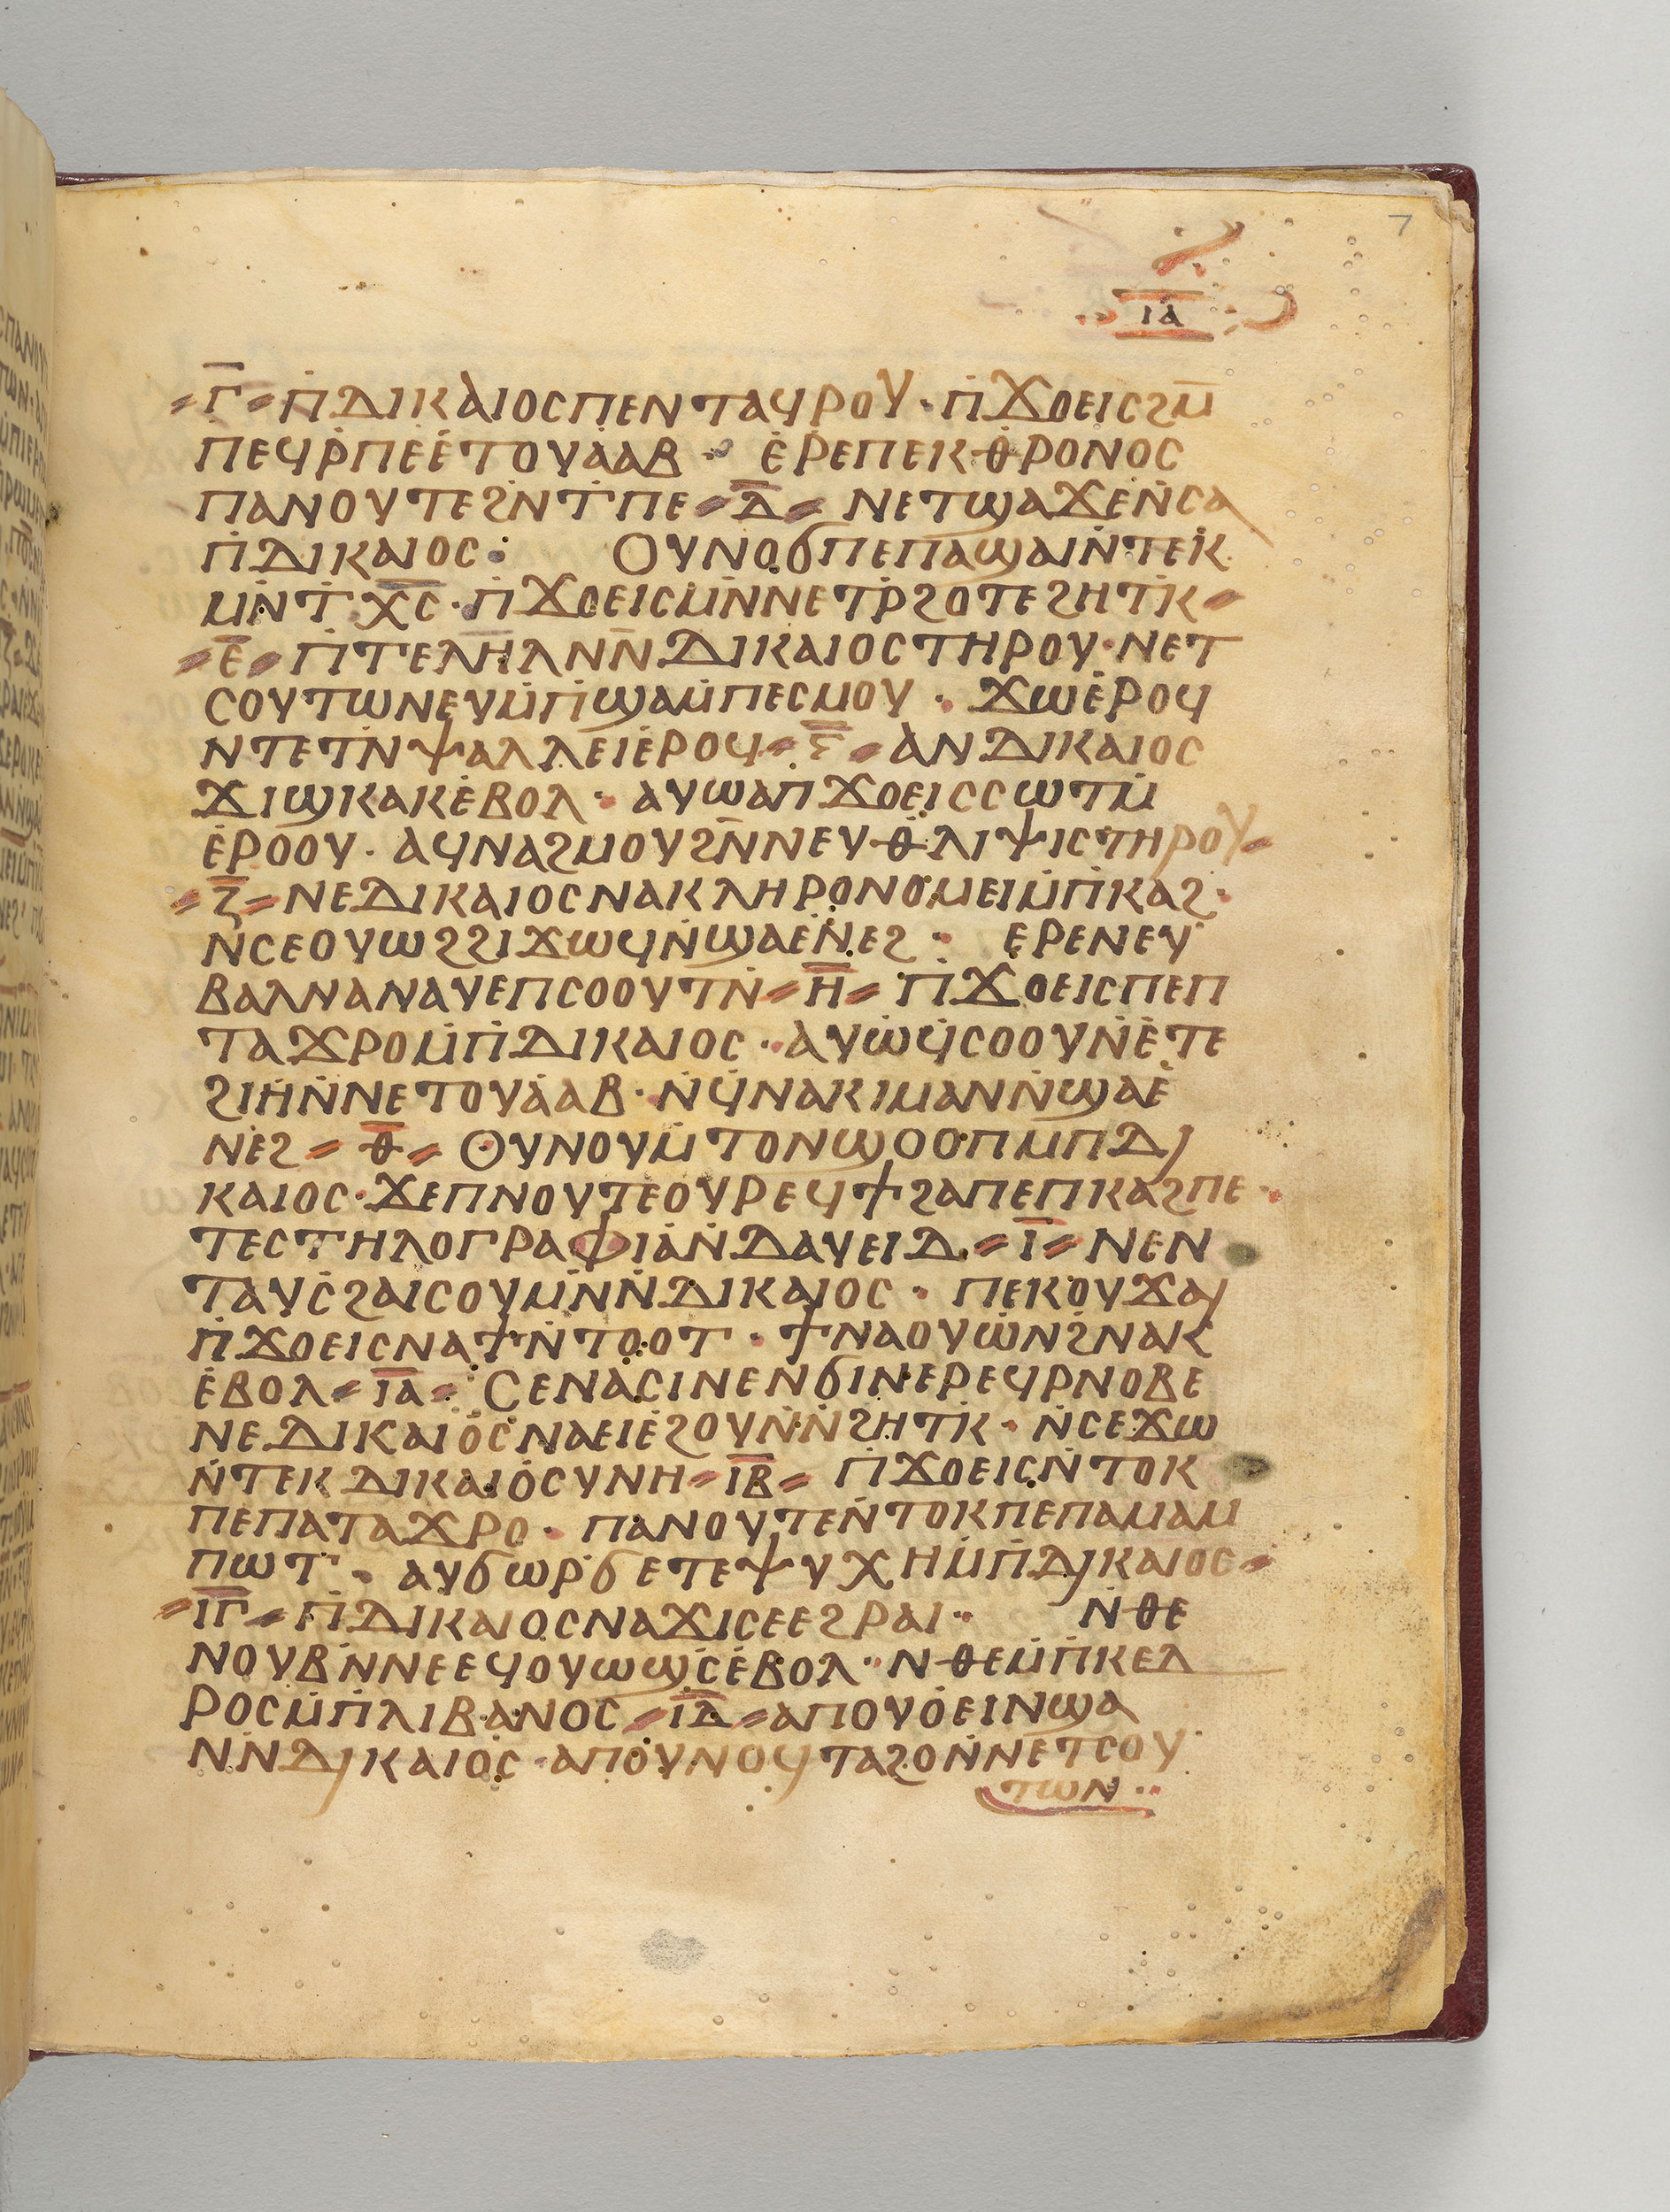 7
ⲓⲁ
ⲅ̅ ⲡ̇ⲇⲓⲕⲁⲓⲟⲥⲡⲉⲛⲧⲁϥⲣⲟⲩ · ⲡ̇ϫⲟⲉⲓⲥϩⲙ̅
ⲡⲉϥⲣ̇ⲡⲉⲉ̇ⲧⲟⲩⲁ̇ⲁⲃ · ⲉ̇ⲣⲉⲡⲉⲕⲑⲣⲟⲛⲟⲥ
ⲡⲁⲛⲟⲩⲧⲉϩⲛ̇ⲧ̇ⲡⲉ ⲇ̅ ⲛⲉⲧϣⲁϫⲉⲛ̇ⲥⲁ
ⲡ̇ⲇⲓⲕⲁⲓⲟⲥ : ⲟⲩⲛⲟϭⲡⲉⲡⲁϣⲁⲓⲛ̇ⲧⲉⲕ
ⲙⲛ̇ⲧ̇ⲭ̅ⲥ̅ · ⲡ̇ϫⲟⲉⲓⲥⲙⲛ̇ⲛⲉⲧⲣ̇ϩⲟⲧⲉϩⲏⲧⲕ̇
ⲉ̅ ⲡ̇ⲧⲉⲗⲏⲗⲛⲛ̅ⲇⲓⲕⲁⲓⲟⲥⲧⲏⲣⲟⲩ · ⲛⲉⲧ
ⲥⲟⲩⲧⲱⲛⲉⲩⲙ̇ⲡ̇ϣⲁⲙ̇ⲡⲉⲥⲙⲟⲩ · ϫⲱⲉ̇ⲣⲟϥ
ⲛⲧⲉⲧⲛ̇ⲯⲁⲗⲗⲉⲓⲉ̇ⲣⲟϥ ⲋ̅ ⲁⲛⲇⲓⲕⲁⲓⲟⲥ
ϫⲓϣⲕⲁⲕⲉ̇ⲃⲟⲗ · ⲁⲩⲱⲁⲡ̇ϫⲟⲉⲓⲥⲥⲱⲧⲙ̇
ⲉ̇ⲣⲟⲟⲩ · ⲁϥⲛⲁϩⲙⲟⲩϩⲛ̅ⲛⲉⲩⲑⲗⲓⲯⲓⲥⲧⲏⲣⲟⲩ
ⲍ̅ ⲛⲉⲇⲓⲕⲁⲓⲟⲥⲛⲁⲕⲗⲏⲣⲟⲛⲟⲙⲉⲓⲙ̇ⲡ̇ⲕⲁϩ ·
ⲛ̇ⲥⲉⲟⲩⲱϩϩⲓϫⲱϥⲛ̇ϣⲁⲉⲛ̇ⲉϩ · ⲉⲣⲉⲛⲉⲩ
ⲃⲁⲗⲛⲁⲛⲁⲩⲉⲡⲥⲟⲟⲩⲧⲛ̇ ⲏ̅ ⲡ̇ϫⲟⲉⲓⲥⲡⲉⲡ
ⲧⲁϫⲣⲟⲙ̇ⲡ̇ⲇⲓⲕⲁⲓⲟⲥ · ⲁⲩⲱ̇ϥ̇ⲥⲟⲟⲩⲛ̇ⲉ̇ⲧⲉ
ϩⲓⲏ̇ⲛ̇ⲛⲉⲧⲟⲩⲁ̇ⲁⲃ · ⲛ̇ϥ̇ⲛⲁⲕⲓⲙⲁⲛⲛ̇ϣⲁⲉ̇
ⲛⲉϩ ⲑ̅ ⲟⲩⲛⲟⲩⲙ̇ⲧⲟⲛϣⲟⲟⲡⲙⲡⲇⲓ
ⲕⲁⲓⲟⲥ · ϫⲉⲡⲛⲟⲩⲧⲉⲟⲩⲣⲉϥϯϩⲁⲡⲉⲡⲕⲁϩⲡⲉ ·
ⲧⲉⲥⲧⲏⲗⲟⲅⲣⲁⲫⲓⲁ̇ⲛ̇ⲇⲁⲩⲉⲓⲇ ⲓ̅ ⲛⲉⲛ
ⲧⲁⲩⲥ̇ϩⲁⲓⲥⲟⲩⲙⲛ̇ⲛ̇ⲇⲓⲕⲁⲓⲟⲥ · ⲡⲉⲕⲟⲩϫⲁⲓ
ⲡ̇ϫⲟⲉⲓⲥⲛⲁϯⲛ̇ⲧⲟⲟⲧ · ϯⲛⲁⲟⲩⲱ̇ⲛϩ̇ⲛⲁⲕ
ⲉ̇ⲃⲟⲗ ⲓⲁ̅ ⲥⲉⲛⲁⲥⲓⲛⲉⲛϭⲓⲛⲉⲣⲉϥⲣⲛⲟⲃⲉ
ⲛⲉⲇⲓⲕⲁⲓⲟ̇ⲥⲛⲁⲉⲓⲉ̇ϩⲟⲩⲛ̇ⲛ̇ϩⲏⲧⲕ̇ · ⲛ̇ⲥⲉϫⲱ
ⲛ̇ⲧⲉⲕⲇⲓⲕⲁⲓⲟ̇ⲥⲩⲛⲏ ⲓⲃ̅ ⲡ̇ϫⲟⲉⲓⲥⲛ̇ⲧⲟⲕ
ⲡⲉⲡⲁⲧⲁϫⲣⲟ · ⲡⲁⲛⲟⲩⲧⲉⲛ̇ⲧⲟⲕⲡⲉⲡⲁⲙⲁⲙ
ⲡⲱⲧ · ⲁⲩϭⲱⲣϭ̇ⲉⲧⲉⲯⲩⲭⲏⲙ̇ⲡ̇ⲇⲓⲕⲁⲓⲟⲥ
ⲓⲅ̅ ⲡ̇ⲇⲓⲕⲁⲓⲟⲥⲛⲁϫⲓⲥⲉⲉϩⲣⲁⲓ · ⲛ̇ⲑⲉ
ⲛⲟⲩⲃⲛ̇ⲛⲉⲉϥⲟⲩⲱϣⲥ̇ⲉ̇ⲃⲟⲗ · ⲛⲑⲉⲙ̇ⲡ̇ⲕⲉⲇ
ⲣⲟⲥⲙ̇ⲡ̇ⲗⲓⲃⲁⲛⲟⲥ ⲓⲇ̅ ⲁⲡⲟⲩⲟ̇ⲉⲓⲛϣⲁ
ⲛⲛ̇ⲇⲓⲕⲁⲓⲟ̇ⲥ · ⲁⲡⲟⲩⲛⲟϥⲧⲁϩⲟⲛ̇ⲛⲉⲧⲥⲟⲩ
ⲧⲱⲛ ·